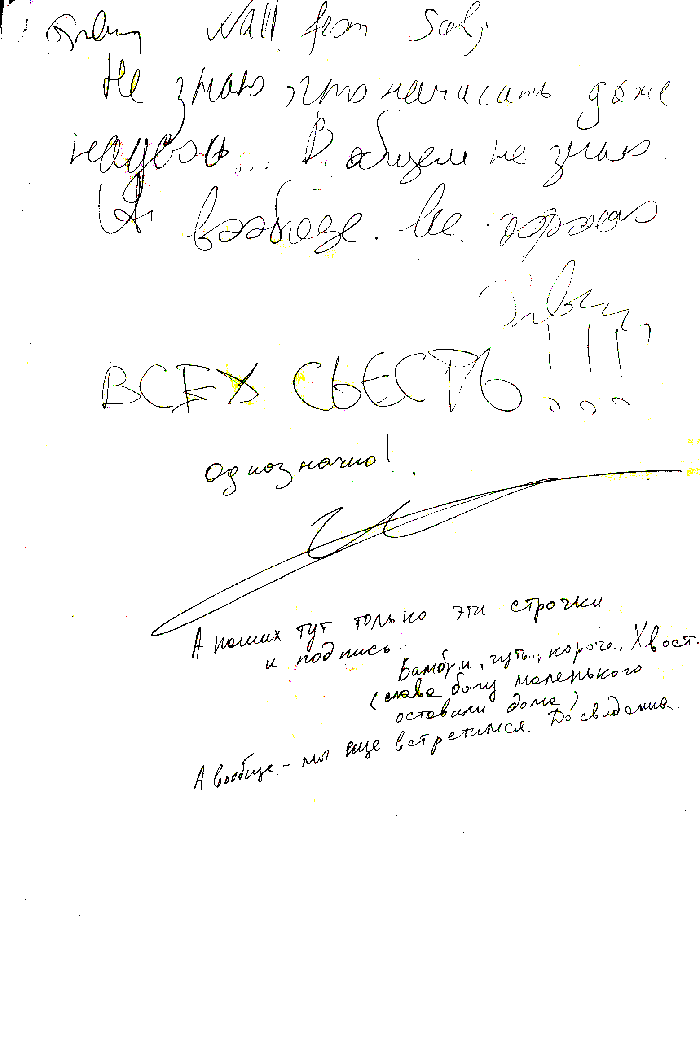 Wall from
Не знаю что написать даже
надеюсь... В общем не знаю.
И вообще. Не
ВСЕХ СЬЕСТЬ !!!
однозначно!
А наших тут только эти строчки
и подпись:
Бамбр и, чуть.., короче.. Хвост.
(слава богу маленького
оставили дома)
А вообще - мы еще встретимся. До свидания.